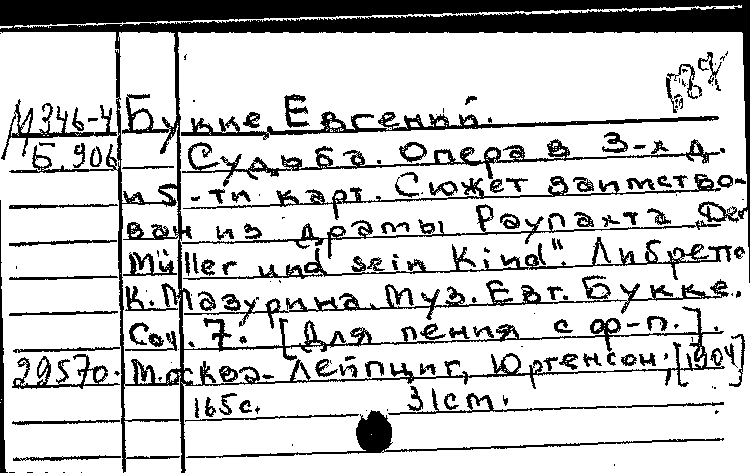 М 346-4 Букке, Евгений.
Б. 906 Судьба. Опера в 3-х д.
и 5-ти карт. Сюжет заимство-
ван из драмы Раупахта „Der
Müller und sein Kind". Либретто
К. Мазурина. Муз. Евг. Букке.
Соч. 7. [Для пения с ф-п.].
29570. Москва - Лейпциг, Юргенсон; [1904]
165 с. 31 cm.